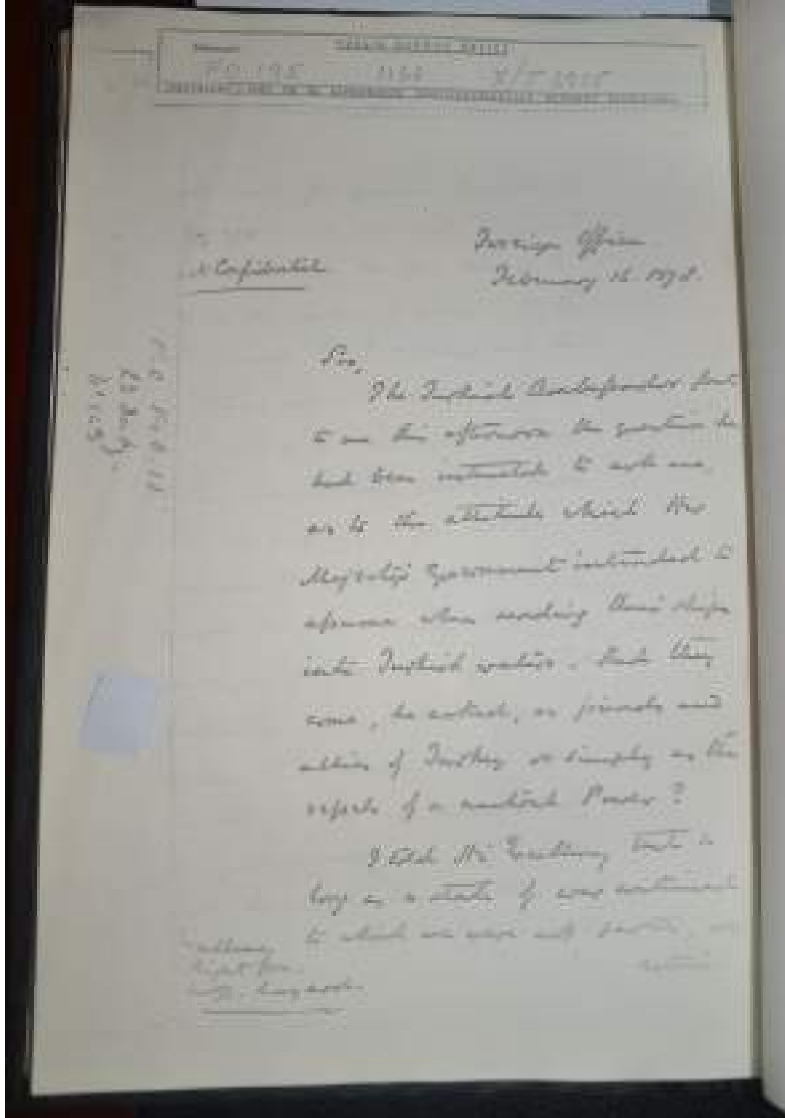 PUBLIC RECORD OFFICE
FO 195
Confidential
Foreign Office
February 16. 1878.
Sir,
The Turkish Ambassador put
to me this afternoon the question he
had been instructed to ask me,
as to the attitude which Her
Majesty's Government intended to
assume when sending their ships
into Turkish waters. Did they
come, he asked, as friends and
allies of Turkey or simply as the
vessels of a neutral Power?
I told His Excellency that so
long as a state of war continued
to which we were not parties, we
Right Hon.
Layard.